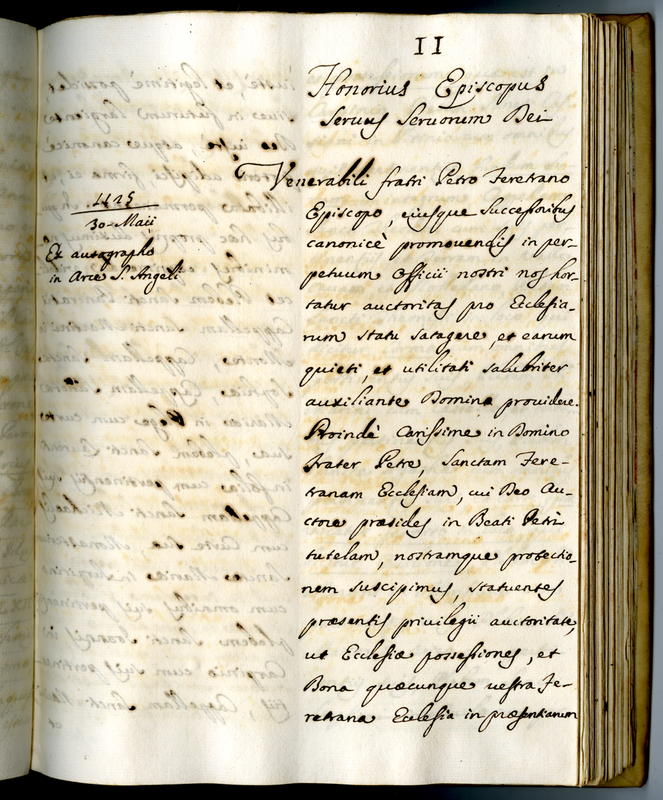 II
Honorius Episcopus
Seruus Seruorum Dei
Venerabili fratri Petro Feretrano
Episcopo, eiusque Successoribus
canonicè promouendis in per-
petuum Officii nostri nos hor-
tatur auctoritas pro Ecclesia-
rum statu satagere, et earum
quieti, et utilitati salubriter
auxiliante Domino prouidere.
Proindè Carissime in Domino
frater Petre, Sanctam Fere-
tranam Ecclesiam, cui Deo Au-
ctore præsides in Beati Petri
tutelam, nostramque protectio-
nem suscipimus, statuentes
præsentis priuilegii auctoritate,
ut Ecclesiæ possessiones, et
Bona quæcunque uestra Fe-
retrana Ecclesia in præsentiarum
1125
30 Maii
Ex autographo
in Arce S. Angeli